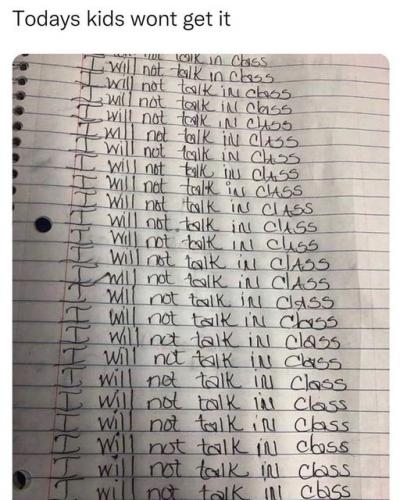 Todays kids wont get it
talk in Class
I will not talk in Class
I will not talk in class
I will not talk in class
I will not talk in CLASS
I will not talk in CLASS
I will not talk in CLASS
I will not talk in CLASS
I will not talk in CLASS
I will not talk in CLASS
I will not talk in CLASS
I will not talk in Class
I will not talk in CLASS
I will not talk in CLASS
I will not talk in Class
I will not talk in Class
I will not talk in Class
I will not talk in Class
I will not talk in Class
I will not talk in Class
I will not talk in Class
I will not talk in class
I will not talk in class
I will not talk in class